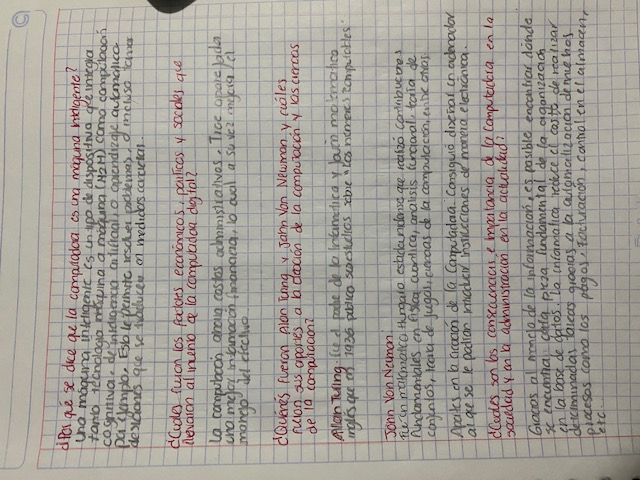 ¿Por qué se dice que la computadora es una maquina inteligente?
Una máquina inteligente es un tipo de dispositivo que integra
tanto tecnología máquina a máquina (M2M) como computación
cognitiva, de inteligencia artificial, o aprendizaje automatico
por ejemplo. Esto le permite resolver problemas, o incluso tomar
desiciones que se traducen en medidas concretas.
¿Cuales fueron los factores económicos, politicos y sociales que
llevaron al invento de la computadora digital?
La computación ahorra costos administrativos. Trae aparejada
una mejor información financiera, lo cual a su vez mejora el
manejo del efectivo
¿Quiénes fueron Alan Turing y John Von Newman y cuáles
fueron sus aportes a la creación de la computación y las ciencias
de la computación?
Allan Turing: fue el padre de la informatica y buen matematico
inglés que en 1936 publico sus estudios sobre "Los números computables"
John Von Neuman:
fue un matematico Hungaro estadounidense que realizó contribuciones
fundamentales en fisica cuantica, analisis funcional, teoria de
conjuntos, teoria de juegos, ciencias de la computación, entre otros
Aportes en la creación de la computadora: Consiguió diseñar un ordenador
al que se le podían introducir instrucciones de manera electrónica.
¿Cuales son las consecuencias e importancia de la computadora en la
sociedad y en la administración en la actualidad?
Gracias al manejo de la información, es posible encontrar dónde
se encuentra cada pieza fundamental de la organización
en la base de datos. La informatica reduce el costo de realizar
determinadas tareas gracias a la automatización de muchos
procesos como los pagos, facturación, control en el almacen,
etc.